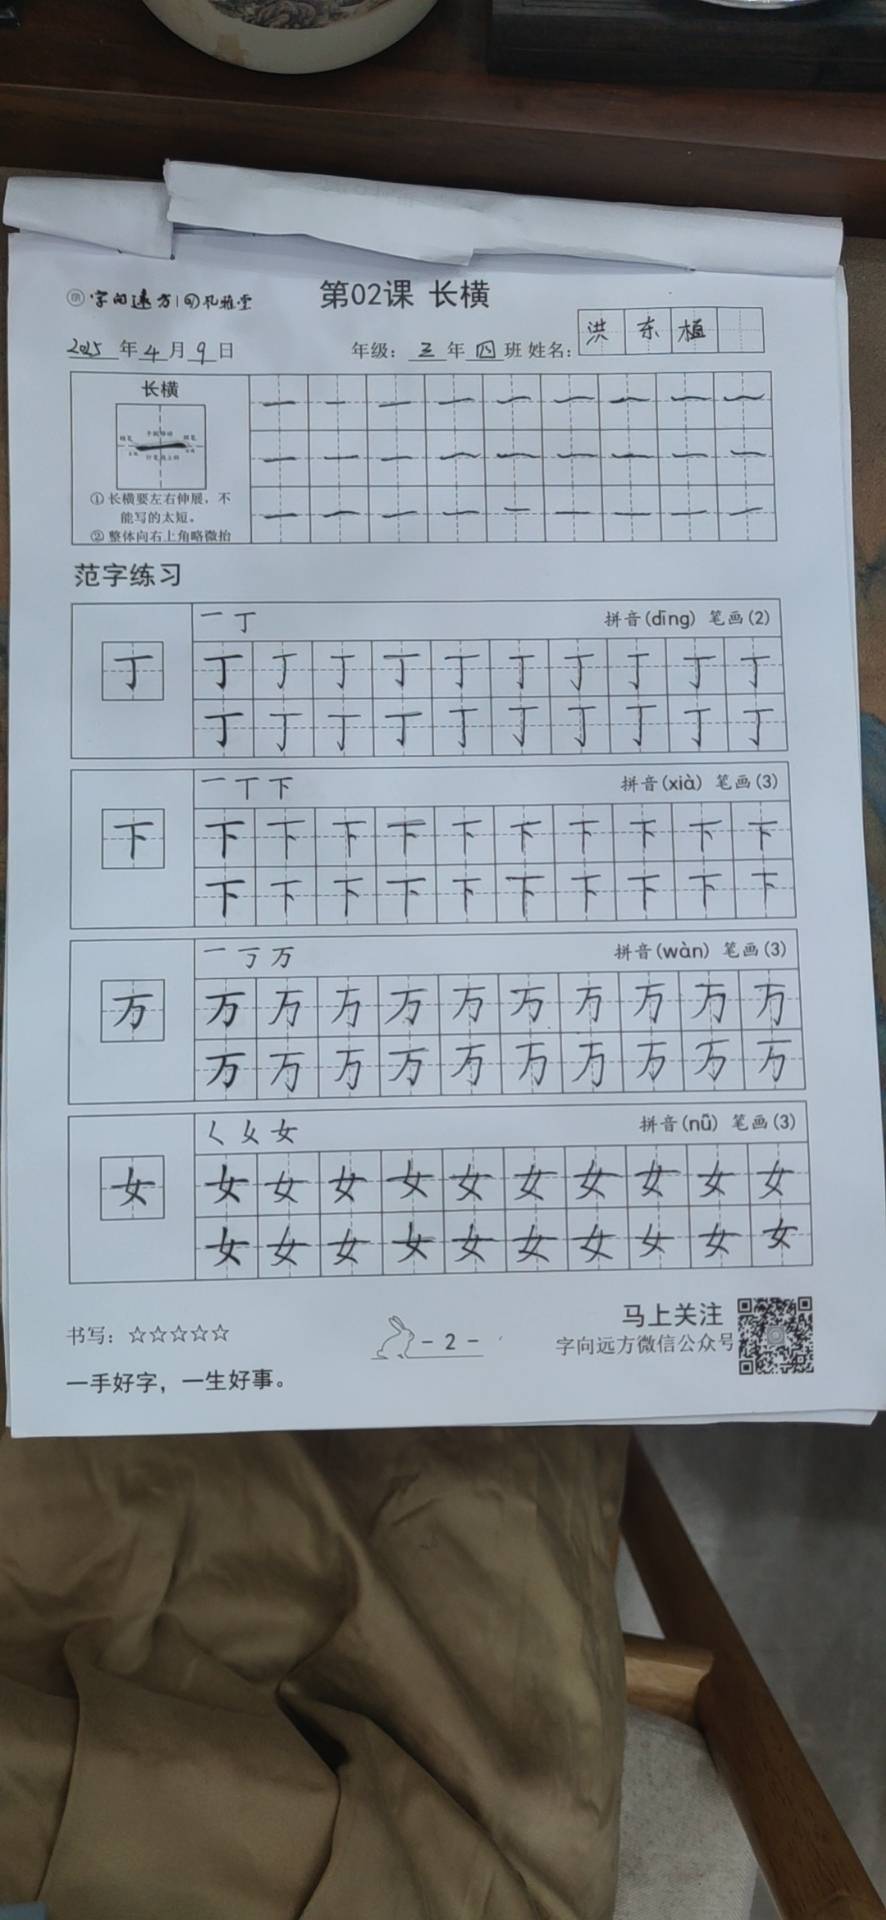 字向远方 | 孔雅堂
第02课 长横
2025年4月9日 年级：三年四班 姓名：洪东植
长横
①长横要左右伸展，不
能写的太短。
②整体向右上角略微抬
一 一 一 一 一 一 一 一 一
一 一 一 一 一 一 一 一 一
一 一 一 一 一 一 一 一 一
范字练习
一 丁 拼音(dīng) 笔画(2)
丁
丁 丁 丁 丁 丁 丁 丁 丁 丁 丁
丁 丁 丁 丁 丁 丁 丁 丁 丁 丁
一 丅 下 拼音(xià) 笔画(3)
下
下 下 下 下 下 下 下 下 下 下
下 下 下 下 下 下 下 下 下 下
一 丂 万 拼音(wàn) 笔画(3)
万
万 万 万 万 万 万 万 万 万 万
万 万 万 万 万 万 万 万 万 万
く 女 女 拼音(nǚ) 笔画(3)
女
女 女 女 女 女 女 女 女 女 女
女 女 女 女 女 女 女 女 女 女
书写：☆☆☆☆☆
- 2 -
马上关注
字向远方微信公众号
一手好字，一生好事。